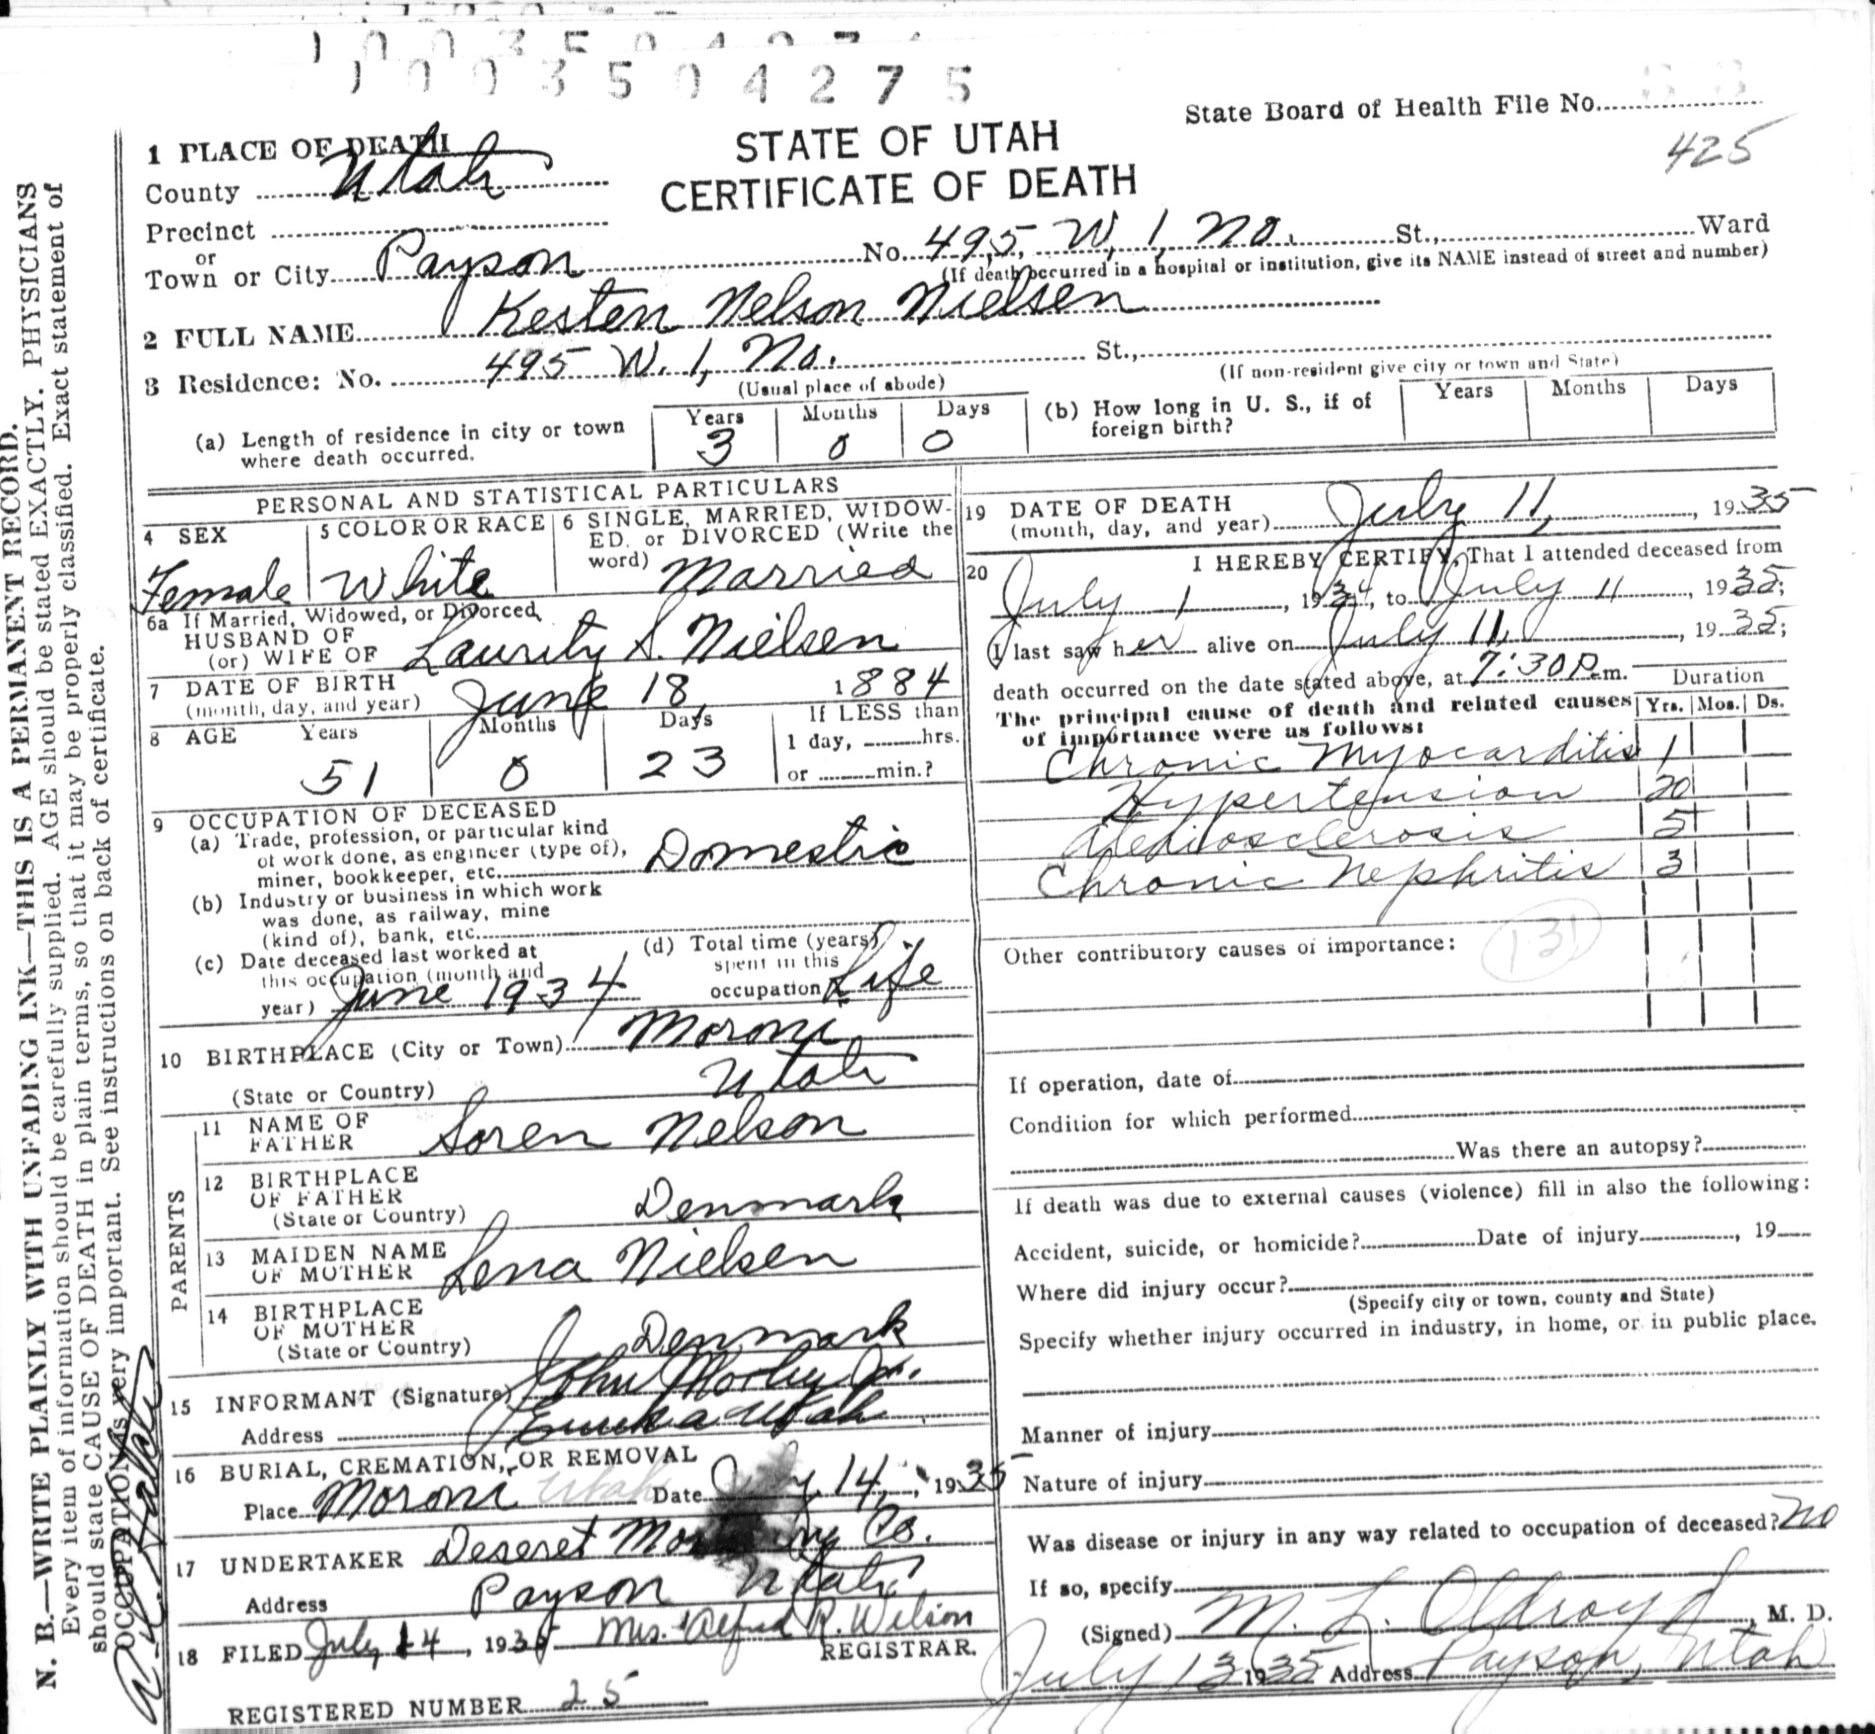 1003504275
State Board of Health File No.
425
STATE OF UTAH
CERTIFICATE OF DEATH
1 PLACE OF DEATH
County Utah
Precinct
or
Town or City Payson No. 495 W. 1, No. St., Ward
(If death occurred in a hospital or institution, give its NAME instead of street and number)
2 FULL NAME Kesten Nelson Nielsen
3 Residence: No. 495 W. 1, No. St.,
(Usual place of abode) (If non-resident give city or town and State)
(a) Length of residence in city or town where death occurred. Years 3 Months 0 Days 0
(b) How long in U. S., if of foreign birth? Years Months Days
PERSONAL AND STATISTICAL PARTICULARS
4 SEX Female
5 COLOR OR RACE White
6 SINGLE, MARRIED, WIDOWED, or DIVORCED (Write the word) Married
6a If Married, Widowed, or Divorced,
HUSBAND OF
(or) WIFE OF Laurity S. Nielsen
7 DATE OF BIRTH
(month, day, and year) June 18 1884
8 AGE Years 51 Months 0 Days 23
If LESS than
1 day, hrs.
or min.?
9 OCCUPATION OF DECEASED
(a) Trade, profession, or particular kind
of work done, as engineer (type of),
miner, bookkeeper, etc. Domestic
(b) Industry or business in which work
was done, as railway, mine
(kind of), bank, etc.
(c) Date deceased last worked at
this occupation (month and
year) June 1934
(d) Total time (years)
spent in this
occupation Life
10 BIRTHPLACE (City or Town) Moroni
(State or Country) Utah
PARENTS
11 NAME OF
FATHER Soren Nelson
12 BIRTHPLACE
OF FATHER
(State or Country) Denmark
13 MAIDEN NAME
OF MOTHER Lena Nielsen
14 BIRTHPLACE
OF MOTHER
(State or Country) Denmark
15 INFORMANT (Signature) John Morley Jr.
Address Eureka Utah
16 BURIAL, CREMATION, OR REMOVAL
Place Moroni Utah Date July 14, 1935
17 UNDERTAKER Deseret Mortuary Co.
Address Payson Utah
18 FILED July 14, 1935 Mrs. Alfred R. Wilson
REGISTRAR.
REGISTERED NUMBER 25
19 DATE OF DEATH
(month, day, and year) July 11, 1935
20 I HEREBY CERTIFY, That I attended deceased from
July 1, 1934, to July 11, 1935;
I last saw her alive on July 11, 1935;
death occurred on the date stated above, at 7:30 P. m.
The principal cause of death and related causes
of importance were as follows:
Duration
Yrs. Mos. Ds.
Chronic Myocarditis 1
Hypertension 20
Arteriosclerosis 5
Chronic Nephritis 3
131
Other contributory causes of importance:
If operation, date of
Condition for which performed
Was there an autopsy?
If death was due to external causes (violence) fill in also the following:
Accident, suicide, or homicide? Date of injury , 19
Where did injury occur?
(Specify city or town, county and State)
Specify whether injury occurred in industry, in home, or in public place.
Manner of injury
Nature of injury
Was disease or injury in any way related to occupation of deceased? No
If so, specify
(Signed) M. L. Oldroyd, M. D.
July 13 1935 Address Payson, Utah
N. B.—WRITE PLAINLY WITH UNFADING INK—THIS IS A PERMANENT RECORD.
Every item of information should be carefully supplied. AGE should be stated EXACTLY. PHYSICIANS
should state CAUSE OF DEATH in plain terms, so that it may be properly classified. Exact statement of
OCCUPATION is very important. See instructions on back of certificate.